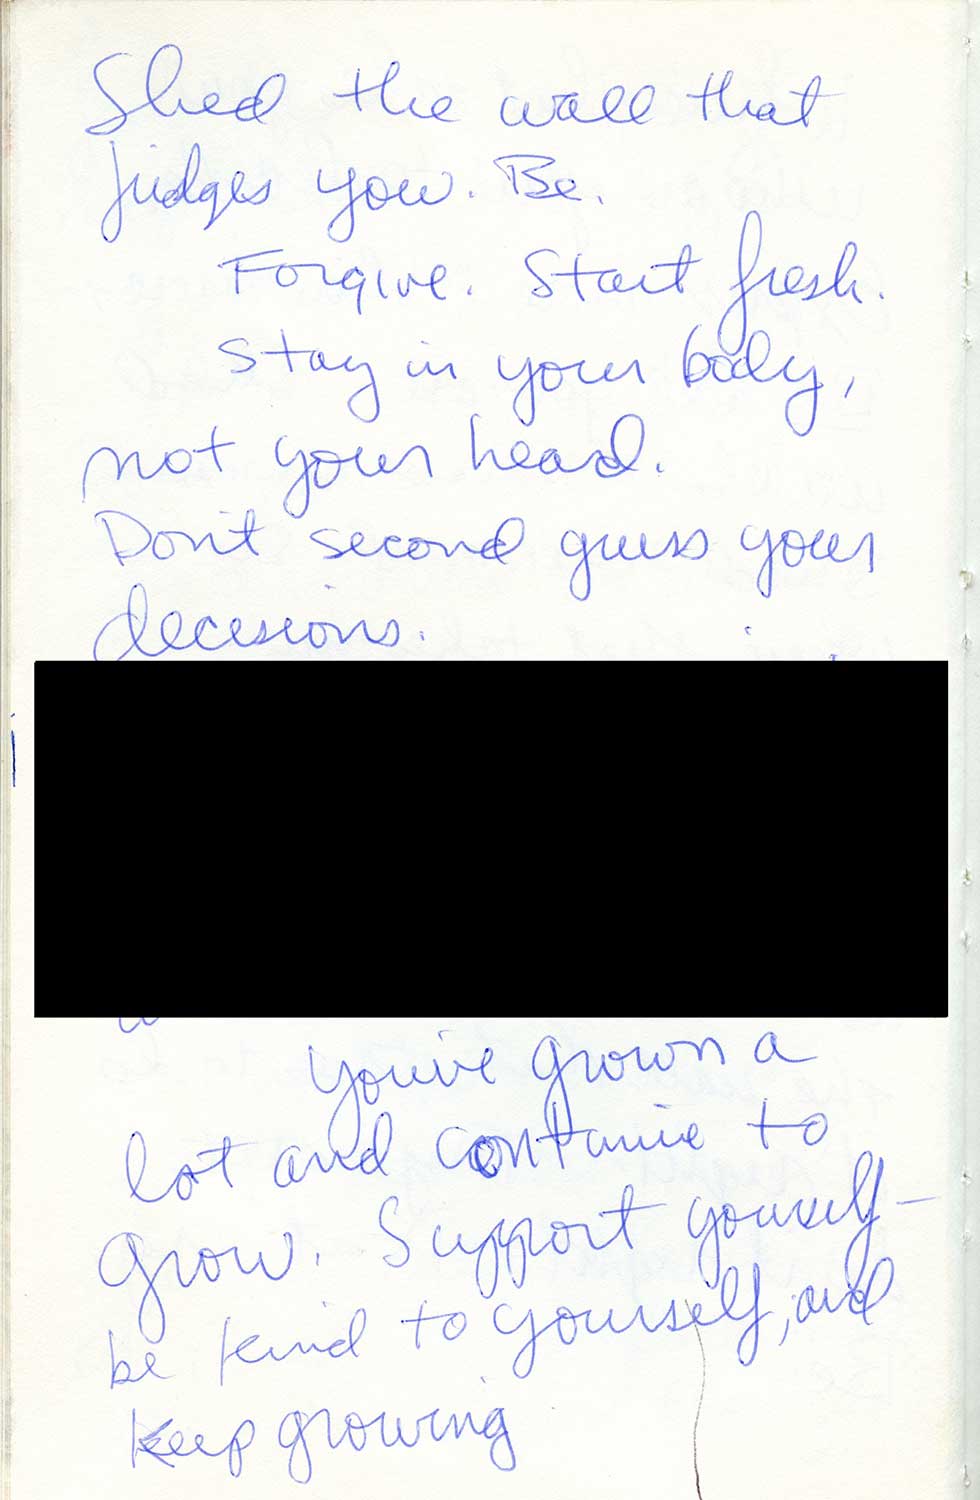 Shed the wall that
judges you. Be.
Forgive. Start fresh.
Stay in your body,
not your head.
Don't second guess your
decisions.
You've grown a
lot and continue to
grow. Support yourself –
be kind to yourself, and
keep growing